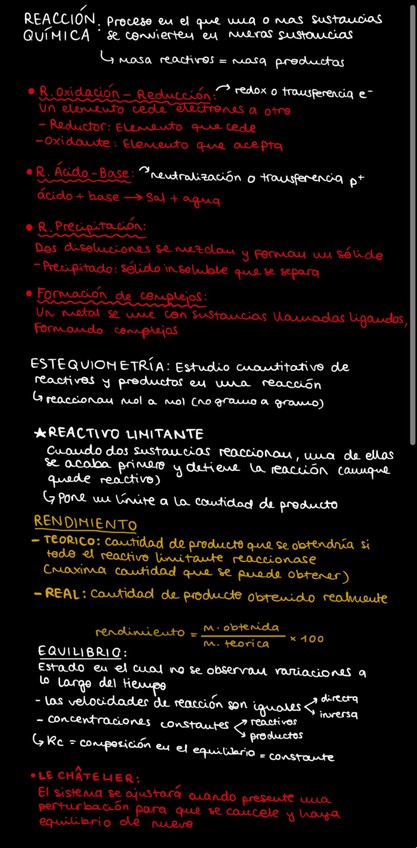 REACCIÓN QUÍMICA: Proceso en el que una o mas sustancias
se convierten en nuevas sustancias
↳ masa reactivos = masa productos
• R. Oxidación - Reducción: → redox o transferencia e⁻
Un elemento cede electrones a otro
- Reductor: Elemento que cede
- Oxidante: Elemento que acepta
• R. Ácido-Base: → neutralización o transferencia p⁺
ácido + base → Sal + agua
• R. Precipitación:
Dos disoluciones se mezclan y forman un sólido
- Precipitado: sólido insoluble que se separa
• Formación de complejos:
Un metal se une con sustancias llamadas ligandos,
formando complejos
ESTEQUIOMETRÍA: Estudio cuantitativo de
reactivos y productos en una reacción
↳ reaccionan mol a mol (no gramo a gramo)
★ REACTIVO LIMITANTE
Cuando dos sustancias reaccionan, una de ellas
se acaba primero y detiene la reacción (aunque
quede reactivo)
↳ Pone un límite a la cantidad de producto
RENDIMIENTO
- TEORICO: cantidad de producto que se obtendría si
todo el reactivo limitante reaccionase
(maxima cantidad que se puede obtener)
- REAL: cantidad de producto obtenido realmente
rendimiento = m. obtenida / m. teorica × 100
EQUILIBRIO:
Estado en el cual no se observan variaciones a
lo largo del tiempo
- las velocidades de reacción son iguales directa
inversa
- concentraciones constantes reactivos
productos
↳ Kc = composición en el equilibrio = constante
• LE CHÂTELIER:
El sistema se ajustará cuando presente una
perturbación para que se cancele y haya
equilibrio de nuevo